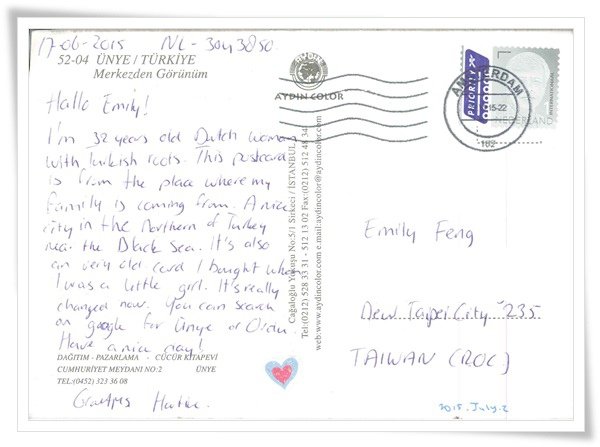 17-06-2015 NL-3043850
52-04 ÜNYE / TÜRKİYE
Merkezden Görünüm
Hallo Emily!
I'm 32 years old Dutch woman
with turkish roots. This postcard
is from the place where my
family is coming from. A nice
city in the Northern of Turkey
near the Black Sea. It's also
an very old card I bought when
I was a little girl. It's really
changed now. You can search
on google for Ünye or Ordu.
Have a nice day!
DAĞITIM - PAZARLAMA - CÜCÜR KİTAPEVİ
CUMHURİYET MEYDANI NO:2 ÜNYE
TEL:(0452) 323 36 08
Groetjes
AYDIN COLOR
Cağaloğlu Yokuşu No:5/1 Sirkeci / İSTANBUL
Tel:(0212) 528 33 31 - 512 13 02 Fax:(0212) 512 48 34
web:www.aydincolor.com e.mail:aydincolor@aydincolor.com
PRIORITY
AMSTERDAM
15-22
NEDERLAND
Emily Feng
New Taipei City 235
TAIWAN (ROC)
2015. July. 2